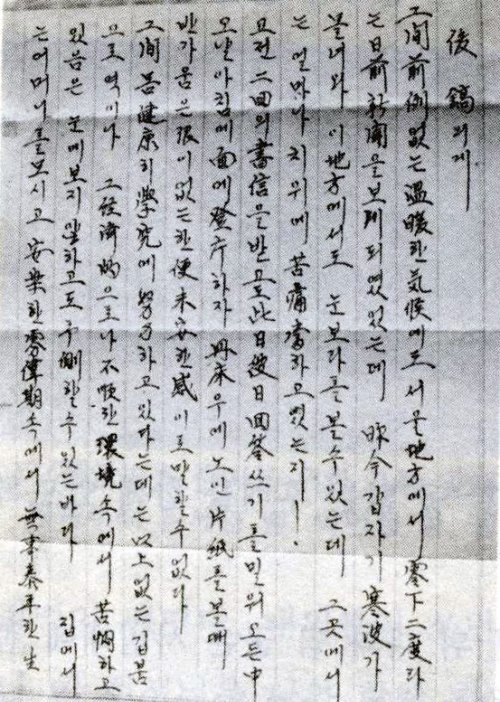 後鎬의게.
그間 前例없는 溫暖한 氣候에도 서울地方에서 零下二度라
는 日前 新聞을 보게되였었는데 昨今 갑자기 寒波가
몰녀와 이地方에서도 눈보라를 볼수있는데 그곳에서
는 얼마나 치위에 苦痛當하고있는지!.
요전 二回의 書信을 받고도 此日彼日 回答쓰기를 밀워오든中
오날아침에 面에 登序하자 冊床우에 노인 片紙를 볼때
반가움은 限이없는한便 未安한 感이르말할수 없다
그間 몸健康히 學究에 努力하고있다는데는 以上없는 깁붐
으로 역이나 그經濟的으로나 不順한 環境속에서 苦憫하고
있음은 눈에보지안하고도 推側할수있는바다 집에서
는 어머니를 모시고 安樂한 雰圍期속에서 無事泰平한 生